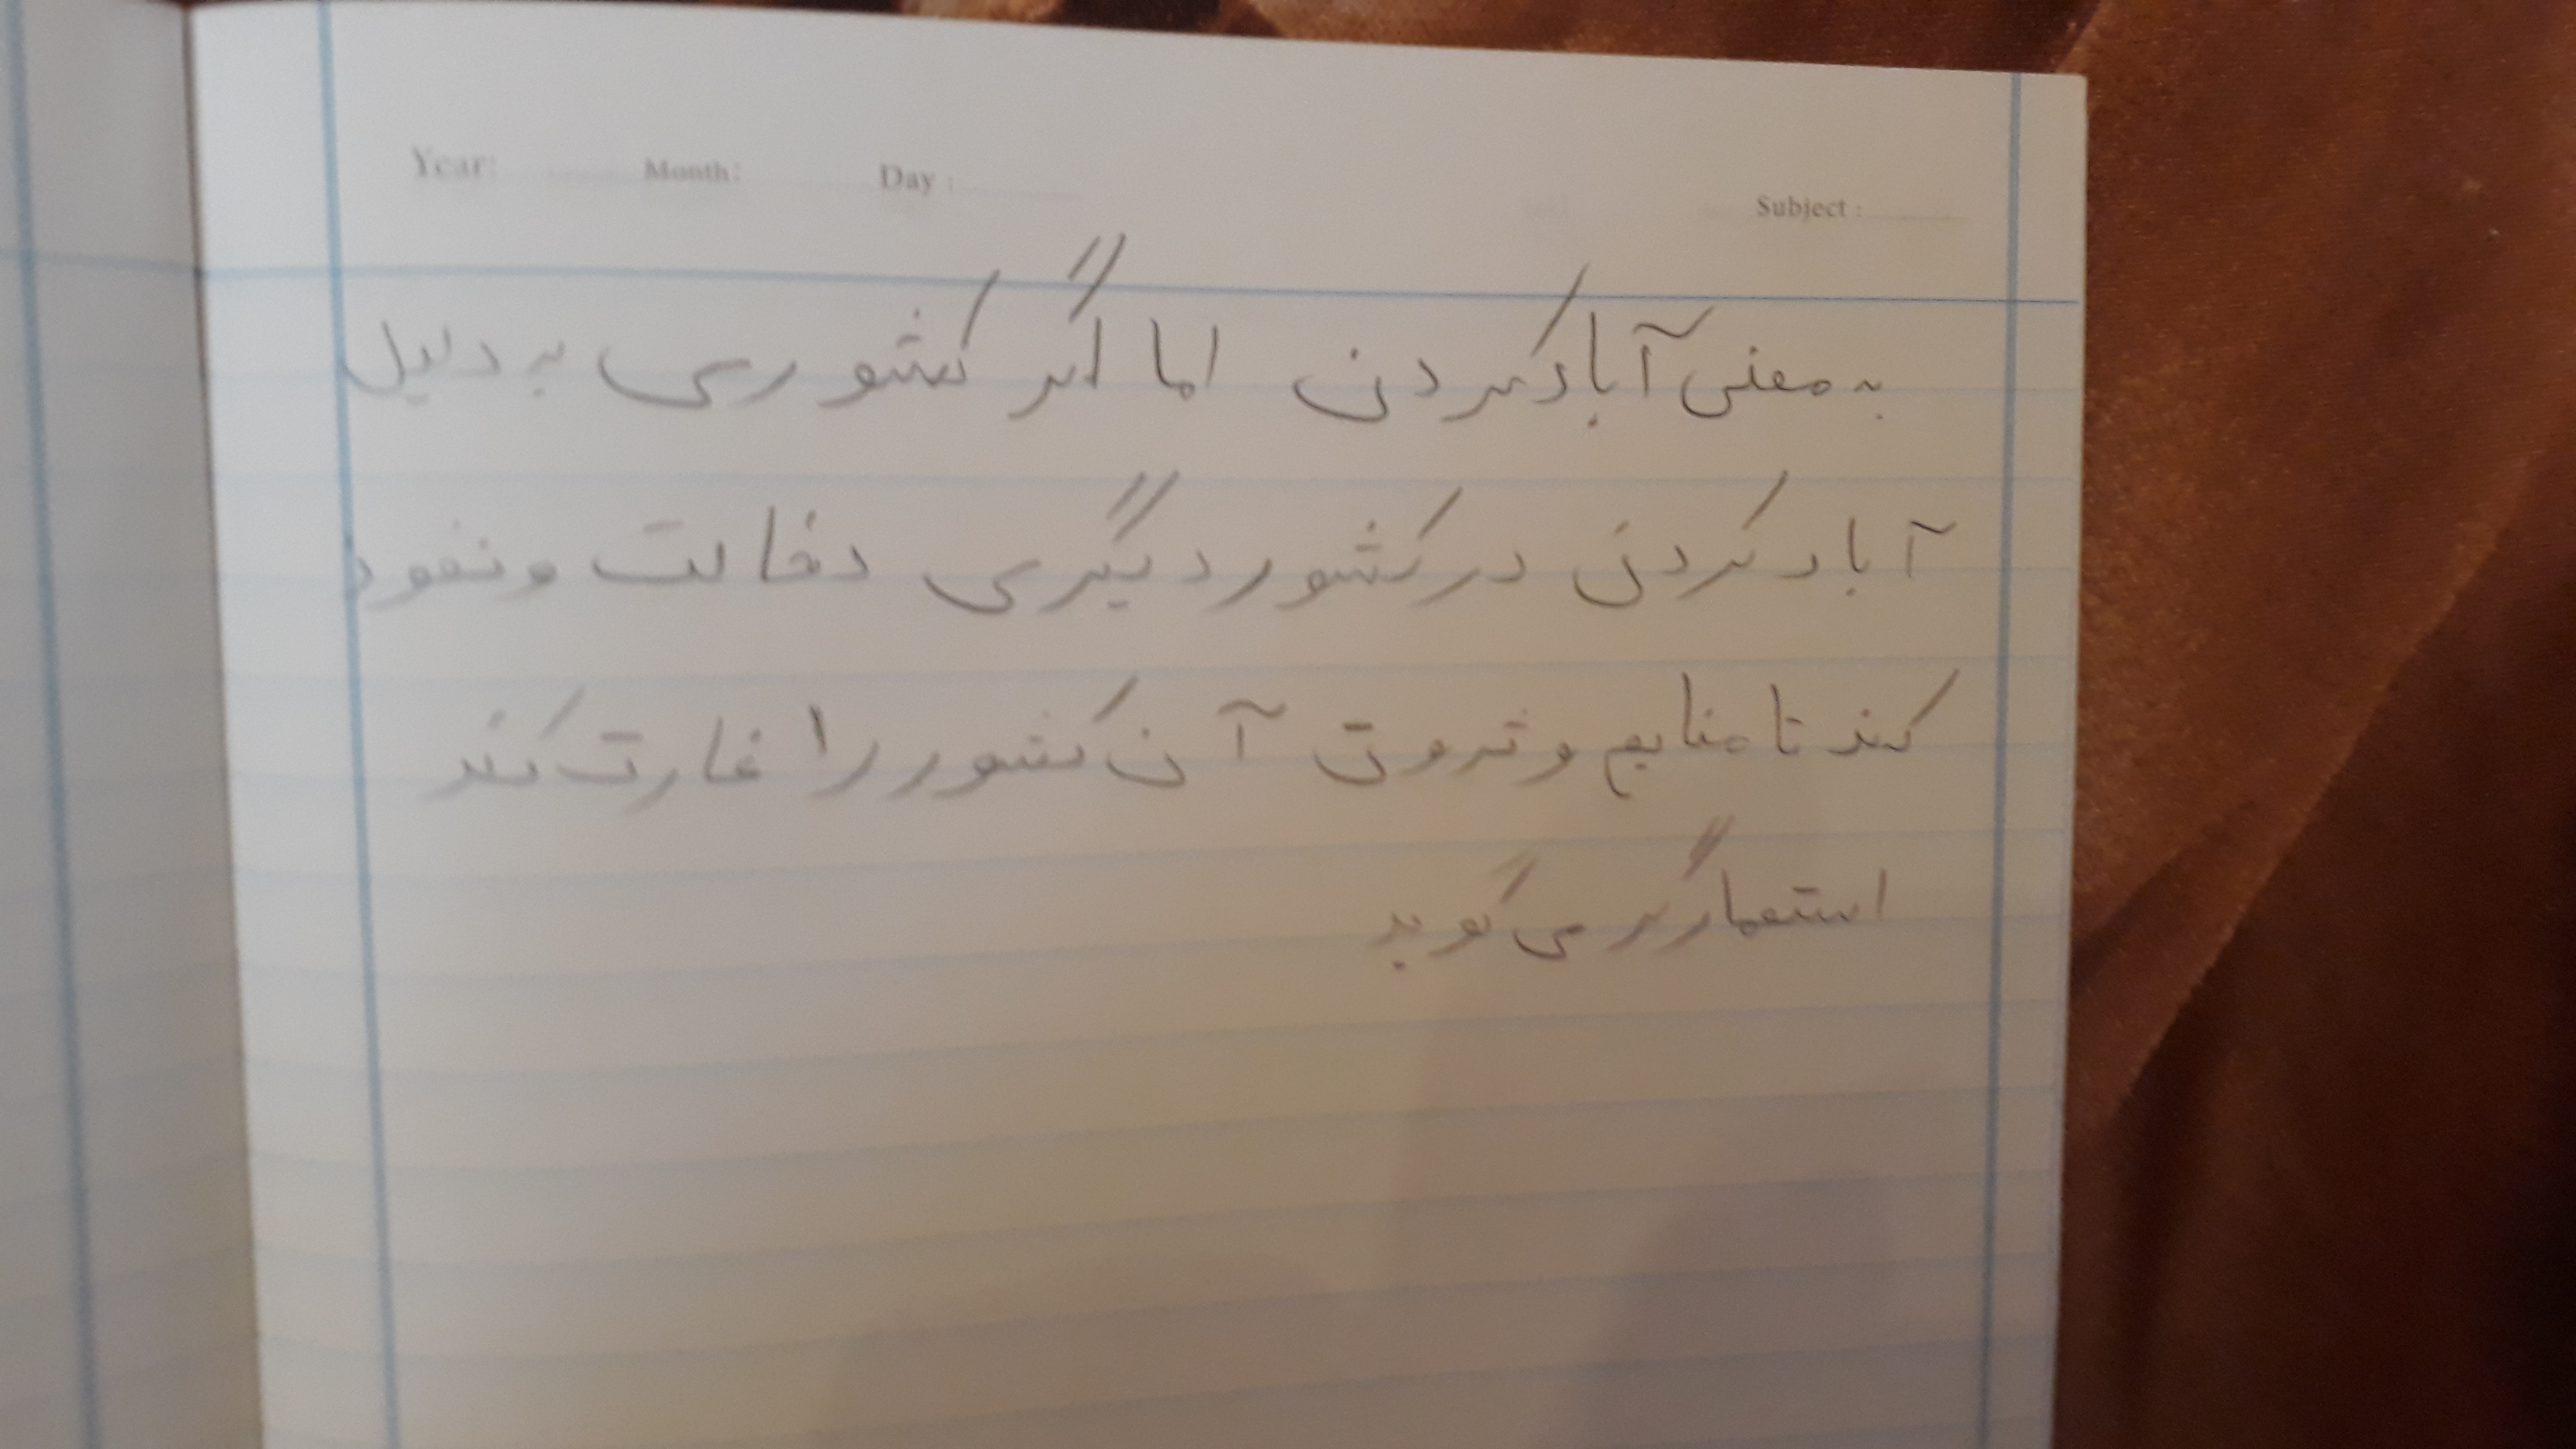 Year: Month: Day: Subject:
به معنی آباد کردن اما اگر کشوری به دلیل
آباد کردن در کشور دیگری دخالت و نفود
کند تا منابع و ثروت آن کشور را غارت کند
استعمارگر می گوید